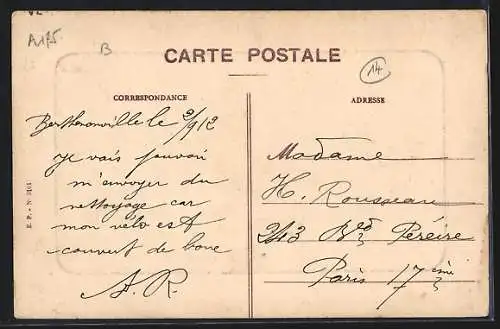 A175
B
14
CARTE POSTALE
CORRESPONDANCE
ADRESSE
Berthenonville le 2/9/12
Je vais pouvoir
m'envoyer du
nettoyage car
mon vélo est
couvert de boue
A. R.
Madame
H. Rousseau
243 Bd Péreire
Paris 17ème